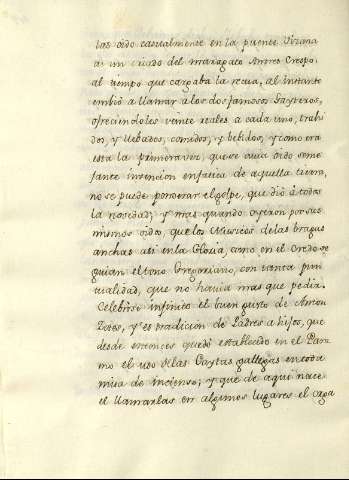 las oido casualmente en la puente Vizana
a un criado del maragato Andres Crespo,
al tiempo que cargaba la recua, al instante
embió a llamar a los dos famosos Gayteros,
ofreciendoles veinte reales a cada uno, trahi
dos, y llebados, comidos, y bebidos, y como era
esta la primera vez, que se avia oido seme
jante invencion en facie de aquella tierra,
no se puede ponderar el golpe, que dió â todos
la novedad; y mas quando oyeron por sus
mismos oidos, que los Musicos de las bragas
anchas asi en la Gloria, como en el Credo se
guian el tono Gregoriano, con tanta pun
tualidad, que no havia mas que pedir.
Celebróse infinito el buen gusto de Anton
Zotes, y es tradicion de Padres a hijos, que
desde entonces quedó establecido en el Para
mo el uso de las Gaytas gallegas en toda
misa de incienso; y que de aqui nace
el llamarlas en algunos lugares el orga